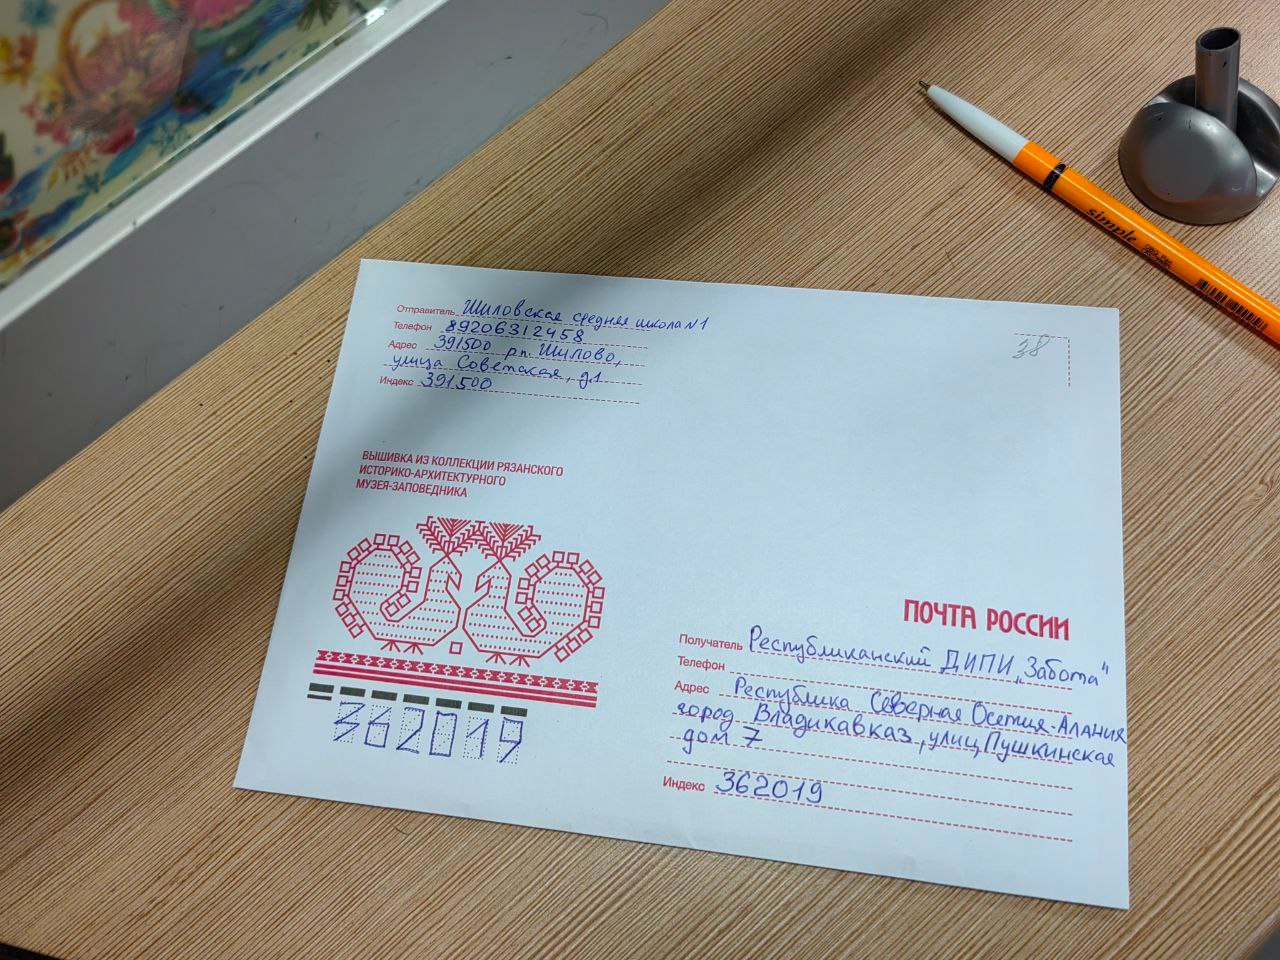 Отправитель Шиловская средняя школа N1
Телефон 89206312458
Адрес 391500 рп. Шилово,
улица Советская, д.1
Индекс 391500
38
ВЫШИВКА ИЗ КОЛЛЕКЦИИ РЯЗАНСКОГО
ИСТОРИКО-АРХИТЕКТУРНОГО
МУЗЕЯ-ЗАПОВЕДНИКА
362019
ПОЧТА РОССИИ
Получатель Республиканский ДИПИ „Забота"
Телефон
Адрес Республика Северная Осетия-Алания
город Владикавказ, улиц Пушкинская
дом 7
Индекс 362019
simple